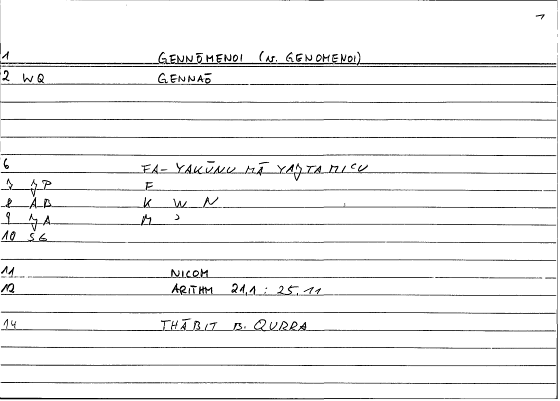 1
1 GENNŌMENOI (N. GENOMENOI)
2 WQ GENNAŌ
6 FA-YAKŪNU MĀ YAJTAMICU
7 JP F
8 AB K W N
9 JA M ʾ
10 SG
11 NICOM
12 ARITHM 21,1 : 25.11
14 THĀBIT B. QURRA